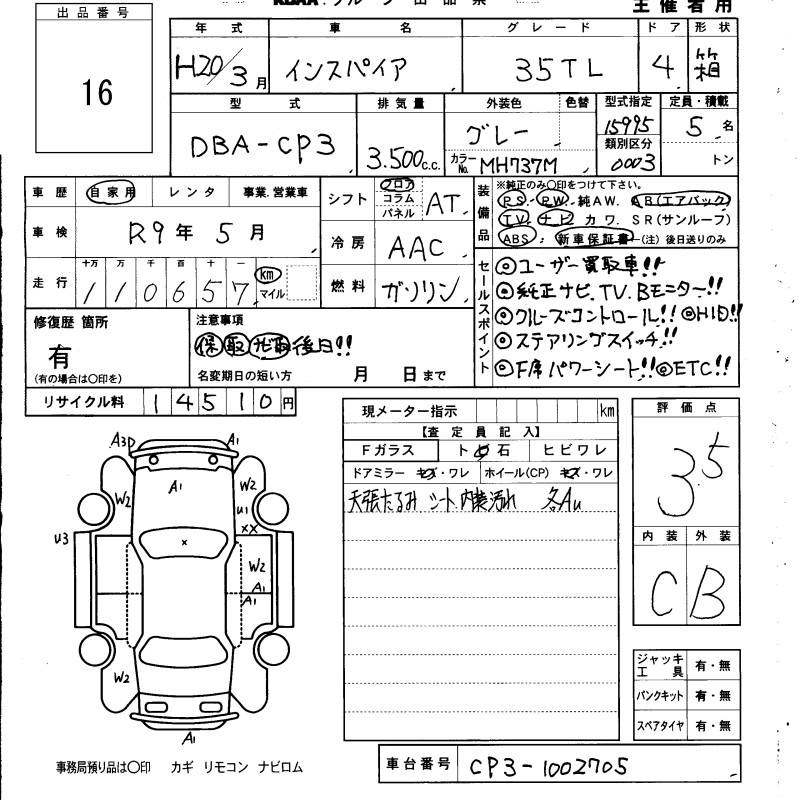 出品番号
16
主催者用
年式 車名 グレード ドア 形状
H20/3月 インスパイア 35TL 4 箱
型式 排気量 外装色 色替 型式指定 定員・積載
DBA-CP3 3.500c.c. グレー 15995 5名
類別区分
カラーNo. MH737M 0003 トン
車歴 自家用 レンタ 事業.営業車
車検 R9年5月
走行 十万 万 千 百 十 一
110657 km マイル
シフト フロア コラム パネル AT
冷房 AAC
燃料 ガソリン
装備品
※純正のみ〇印をつけて下さい。
P.S. P.W. 純A.W. A.B(エアバック)
T.V. ナビ カワ. S.R(サンルーフ)
ABS 新車保証書 (注)後日送りのみ
セールスポイント
◎ユーザー買取車!!
◎純正ナビ.TV.Bモニター!!
◎クルーズコントロール!! ◎HID!!
◎ステアリングスイッチ!!
◎F席パワーシート!! ◎ETC!!
修復歴 箇所
有
(有の場合は〇印を)
注意事項
保 取 ナビ取 後日!!
名変期日の短い方 月 日まで
リサイクル料 14510円
現メーター指示 km
【査定員記入】
Fガラス ト 石 ヒビワレ
ドアミラー キズ・ワレ ホイール(CP) キズ・ワレ
天張たるみ シート、内装汚れ 各AU
評価点
3.5
内装 外装
C B
A3 A1
A1
W2 W2
U1
U3 XX
×
W2
A1
A1
W2
A1
ジャッキ工具 有・無
パンクキット 有・無
スペアタイヤ 有・無
事務局預り品は〇印 カギ リモコン ナビロム
車台番号 CP3-1002705